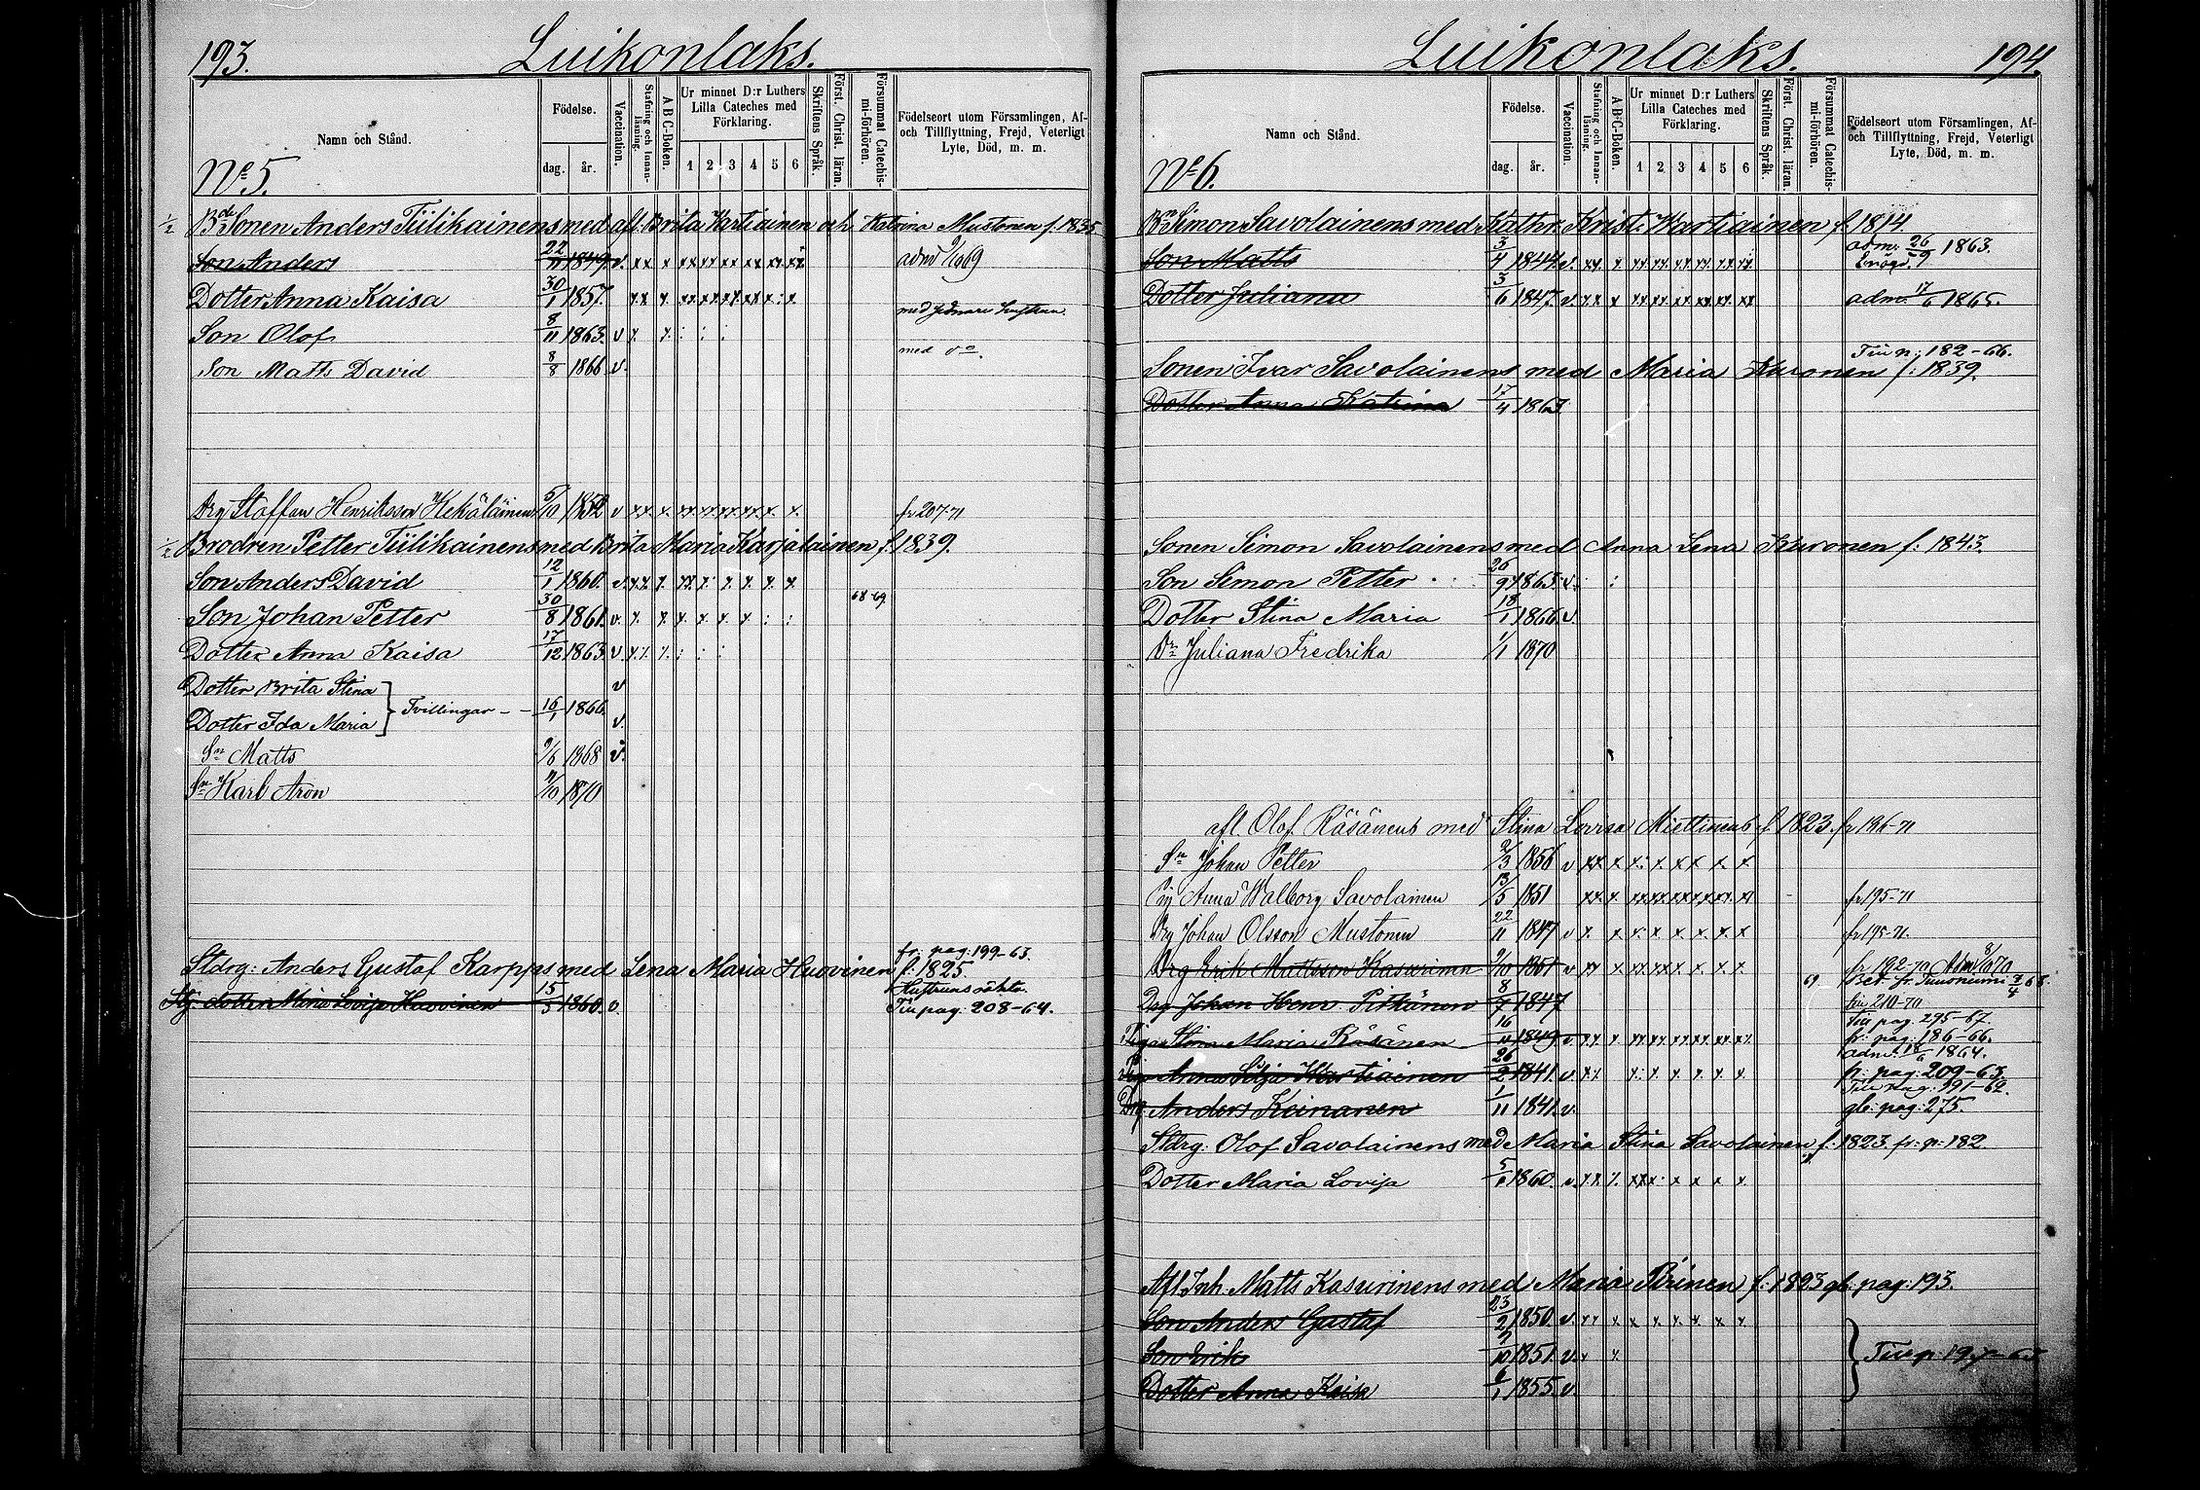 193.
Luikonlaks.
Namn och Stånd.
Födelse.
dag.
år.
Vaccination.
Stafning och Innan-läsning.
A B C-Boken.
Ur minnet D:r Luthers
Lilla Cateches med
Förklaring.
1 2 3 4 5 6
Skriftens Språk.
Först. Christ. läran.
Försummat Catechis-mi-förhören.
Födelseort utom Församlingen, Af-
och Tillflyttning, Frejd, Veterligt
Lyte, Död, m. m.
No 5.
1/2 Bde Sonen Anders Tiilikainens med afl. Brita Hartiainen och Katrina Mustonen f. 1835
Son Anders 22/11 1849. v.
Dotter Anna Kaisa 30/1 1857.
Son Olof 8/11 1863. v
Son Matts David 8/8 1866 v.
Drg Staffan Henriksson Kekäläinen 5/10 1852 v fr 207-71
1/2 Brodren Petter Tiilikainens med Brita Maria Karjalainen f. 1839.
Son Anders David 12/1 1860. v.
Son Johan Petter 30/8 1861. v. 68-69
Dotter Anna Kaisa 17/12 1863. v.
Dotter Brita Stina v
Tvillingar 16/1 1866.
Dotter Ida Maria v.
Sn Matts 9/6 1868 v.
Sn Karl Aron 7/10 1870
fr: pag: 199-63.
Stdrg: Anders Gustaf Karpps med Lena Maria Huovinen f: 1825.
Hustruns oäkta.
dotter Maria Lovisa Huovinen 15/3 1860. v. Till pag: 208-64.
194.
Luikonlaks.
Namn och Stånd.
Födelse.
dag.
år.
Vaccination.
Stafning och Innan-läsning.
A B C-Boken.
Ur minnet D:r Luthers
Lilla Cateches med
Förklaring.
1 2 3 4 5 6
Skriftens Språk.
Först. Christ. läran.
Försummat Catechis-mi-förhören.
Födelseort utom Församlingen, Af-
och Tillflyttning, Frejd, Veterligt
Lyte, Död, m. m.
No 6.
Simon Savolainens med Kathr. Krist. Hartiainen f. 1814.
Son Matts 3/4 1844. v. adm: 26/9 1863.
Dotter Juliana 3/6 1847. v. adm. 17/6 1865.
Till p: 182-66.
Sonen Ivar Savolainens med Maria Kuronen f: 1839.
Dotter Anna Katrina 17/4 1863
Sonen Simon Savolainens med Anna Lena Kuronen f: 1843.
Son Simon Petter 26/9 1865. v.
Dotter Stina Maria 18/1 1866. v.
Dr Juliana Fredrika 1/1 1870
afl. Olof Räsänens med Stina Lovisa Miettinens f 1823. fr 196-71
Sn Johan Petter 2/3 1856 v
Pig Anna Walborg Savolainen 13/5 1851 fr 195-71
Drg Johan Olsson Mustonen 22/11 1847 v fr 195-71.
Drg Erik Mattsson Kasurinen 9/10 1851 v 69 fr 192-70
Drg Johan Henr. Pitkänen 8/7 1847
till 210-70
Till pag: 295-67.
Stina Maria Räsänen 16/11 1849 v fr: pag: 186-66.
adm: 18/6 1864.
Anna Silja Hartiainen 26/2 1841. v. fr: pag: 209-63.
Drg Anders Keinanen 1/11 1841. v. gl: pag: 275.
Stdrg: Olof Savolainens med Maria Stina Savolainen f: 1823. fr: p: 182
Dotter Maria Lovisa 1860. v.
Afl. Inh. Matts Kasurinens med Maria Piirinen f: 1803 gl: pag: 193.
Son Anders Gustaf 23/2 1850. v.
Son Erik 9/10 1851. v.
Dotter Anna Kaisa 6/1 1855. v.